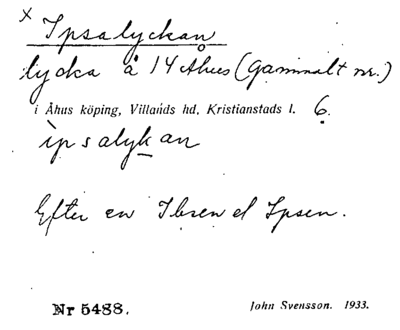 x Ipsalyckan
lycka å 14 Åhus (Gammalt nr.)
i Åhus köping, Villands hd, Kristianstads l. 6.
ìpsalykan
Efter en Ibsen el Ipsen.
Nr 5488. John Svensson. 1933.